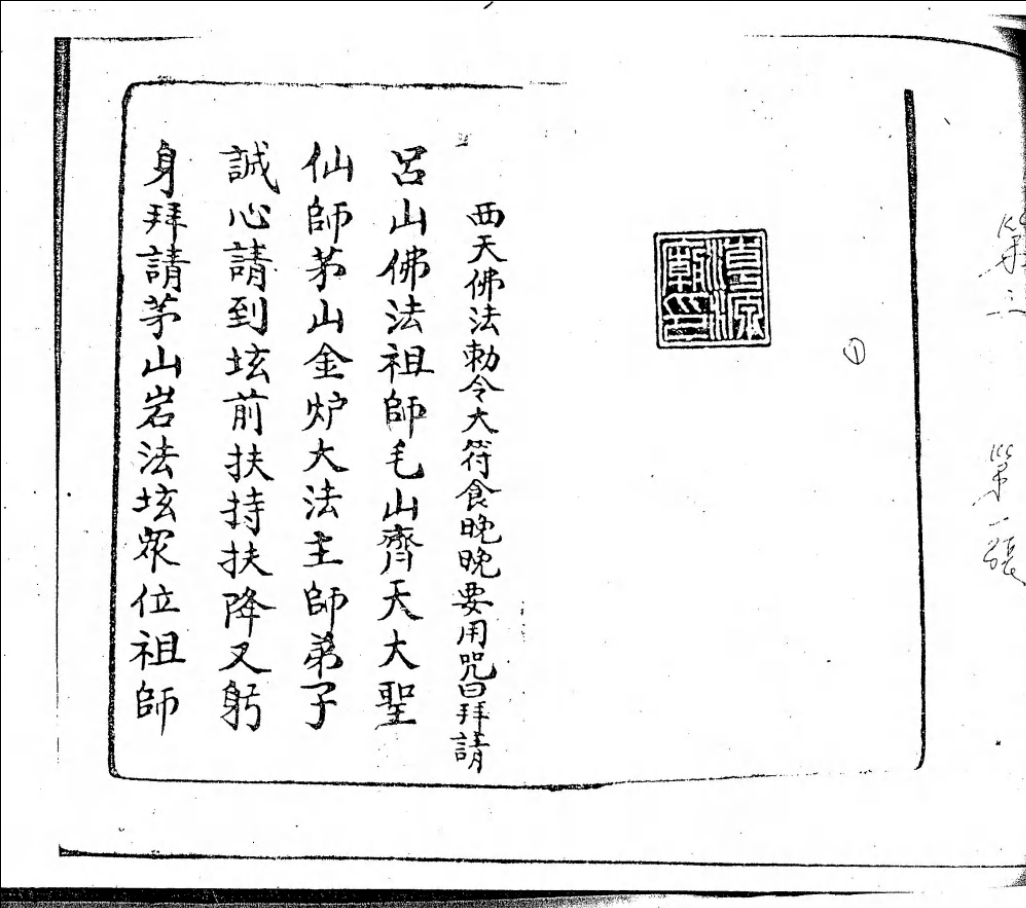 ①
西天佛法勅令大符食晚晚要用咒曰拜請
呂山佛法祖師毛山齊天大聖
仙師茅山金炉大法主師弟子
誠心請到坛前扶持扶降又躬
身拜請茅山岩法坛眾位祖師